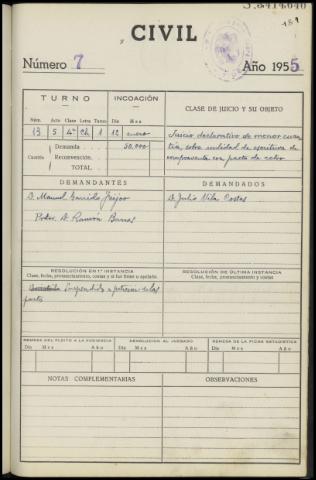 CIVIL
Número 7
Año 1955
TURNO
INCOACIÓN
CLASE DE JUICIO Y SU OBJETO
Núm. Acto Clase Letra Turno Día Mes
13 5 4ª Ch 1 12 enero
Cuantía
Demanda 50.000
Reconvención.
TOTAL.
Juicio declarativo de menor cuan-
tía, sobre nulidad de escritura de
compraventa con pacto de retro
DEMANDANTES
DEMANDADOS
D. Manuel Garrido Feijoo
D. Julio Vila Costas
D. Ramón
RESOLUCIÓN EN 1.ª INSTANCIA
Clase, fecha, pronunciamiento, costas y si fue firme o apelado.
RESOLUCIÓN DE ÚLTIMA INSTANCIA
Clase, fecha, pronunciamiento, costas
Suspendido a petición de las
partes
REMESA DEL PLEITO A LA AUDIENCIA
DEVOLUCIÓN AL JUZGADO
REMESA DE LA FICHA ESTADÍSTICA
Día Mes Año
Día Mes Año
Día Mes Año
NOTAS COMPLEMENTARIAS
OBSERVACIONES